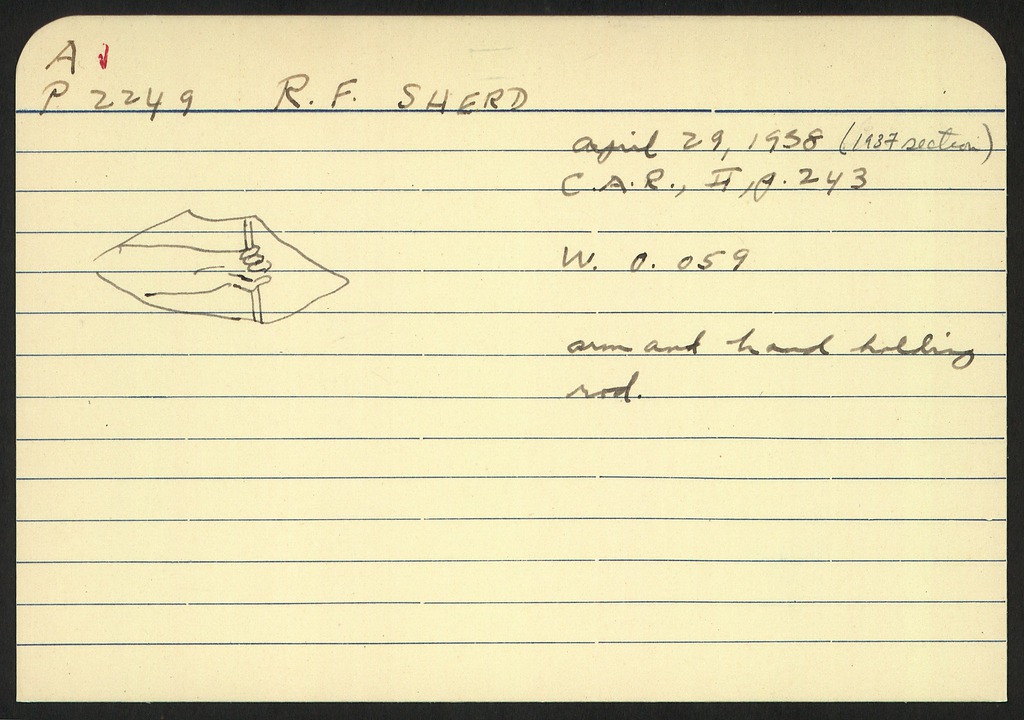 A
P 2249 R. F. SHERD
april 29, 1938 (1937 section)
C.A.R., II, p. 243
W. 0.059
arm and hand holding
rod.